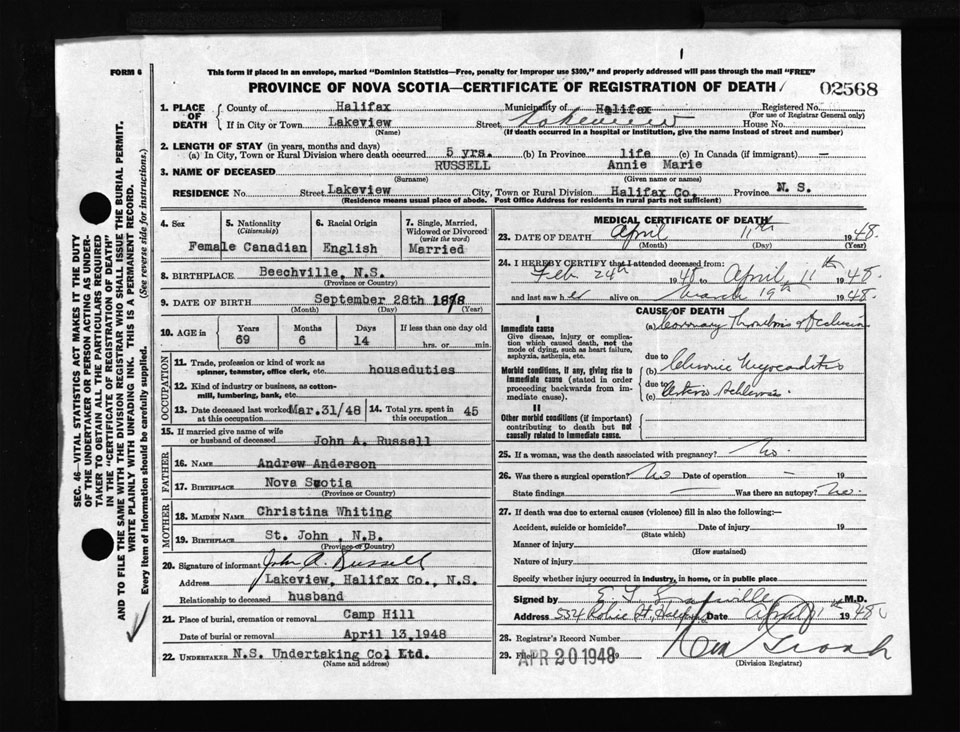 FORM 6
This form if placed in an envelope, marked "Dominion Statistics—Free, penalty for improper use $300," and properly addressed will pass through the mail "FREE"
PROVINCE OF NOVA SCOTIA—CERTIFICATE OF REGISTRATION OF DEATH
02568
SEC. 46—VITAL STATISTICS ACT MAKES IT THE DUTY
OF THE UNDERTAKER OR PERSON ACTING AS UNDER-
TAKER TO OBTAIN ALL THE PARTICULARS REQUIRED
IN THE "CERTIFICATE OF REGISTRATION OF DEATH"
AND TO FILE THE SAME WITH THE DIVISION REGISTRAR WHO SHALL ISSUE THE BURIAL PERMIT.
WRITE PLAINLY WITH UNFADING INK. THIS IS A PERMANENT RECORD.
Every item of information should be carefully supplied. (See reverse side for instructions.)
1. PLACE OF DEATH
County of Halifax Municipality of Halifax Registered No.
(For use of Registrar General only)
If in City or Town Lakeview Street Lakeview House No.
(Name) (If death occurred in a hospital or institution, give the name instead of street and number)
2. LENGTH OF STAY (in years, months and days)
(a) In City, Town or Rural Division where death occurred 5 yrs. (b) In Province life (c) In Canada (if immigrant) —
3. NAME OF DECEASED RUSSELL Annie Marie
(Surname) (Given name or names)
RESIDENCE No. Street Lakeview City, Town or Rural Division Halifax Co. Province N. S.
(Residence means usual place of abode. Post Office Address for residents in rural parts not sufficient)
4. Sex
Female
5. Nationality
(Citizenship)
Canadian
6. Racial Origin
English
7. Single, Married,
Widowed or Divorced
(write the word)
Married
8. BIRTHPLACE Beechville, N.S.
(Province or County)
9. DATE OF BIRTH September 28th 1878
(Month) (Day) (Year)
10. AGE in
Years Months Days If less than one day old
69 6 14 hrs. or min.
OCCUPATION
11. Trade, profession or kind of work as
spinner, teamster, office clerk, etc. houseduties
12. Kind of industry or business, as cotton-
mill, lumbering, bank, etc.
13. Date deceased last worked at this occupation Mar.31/48
14. Total yrs. spent in this occupation 45
15. If married give name of wife
or husband of deceased John A. Russell
FATHER
16. NAME Andrew Anderson
17. BIRTHPLACE Nova Scotia
(Province or Country)
MOTHER
18. MAIDEN NAME Christina Whiting
19. BIRTHPLACE St. John, N.B.
(Province or Country)
20. Signature of informant John A. Russell
Address Lakeview, Halifax Co., N.S.
Relationship to deceased husband
21. Place of burial, cremation or removal Camp Hill
Date of burial or removal April 13,1948
22. UNDERTAKER N.S. Undertaking Co. Ltd.
(Name and address)
MEDICAL CERTIFICATE OF DEATH
23. DATE OF DEATH April 11th 1948.
(Month) (Day) (Year)
24. I HEREBY CERTIFY that I attended deceased from:
Feb 24th 1948 to April 11th 1948.
and last saw her alive on March 19th 1948.
CAUSE OF DEATH
I
Immediate cause
Give disease, injury or complication which caused death, not the mode of dying, such as heart failure, asphyxia, asthenia, etc.
(a) Coronary Thrombosis Occlusion
due to
Morbid conditions, if any, giving rise to immediate cause (stated in order proceeding backwards from immediate cause).
(b) Chronic Myocarditis
due to
(c) Arterio Sclerosis.
II
Other morbid conditions (if important) contributing to death but not causally related to immediate cause.
25. If a woman, was the death associated with pregnancy? No.
26. Was there a surgical operation? No Date of operation — 19
State findings — Was there an autopsy? No.
27. If death was due to external causes (violence) fill in also the following:—
Accident, suicide or homicide? Date of injury 19
(State which)
Manner of injury
(How sustained)
Nature of injury
Specify whether injury occurred in industry, in home, or in public place
Signed by M.D.
Address 534 Robie St, Halifax Date April 11th 1948
28. Registrar's Record Number
29. Filed APR 20 1948 19
(Division Registrar)